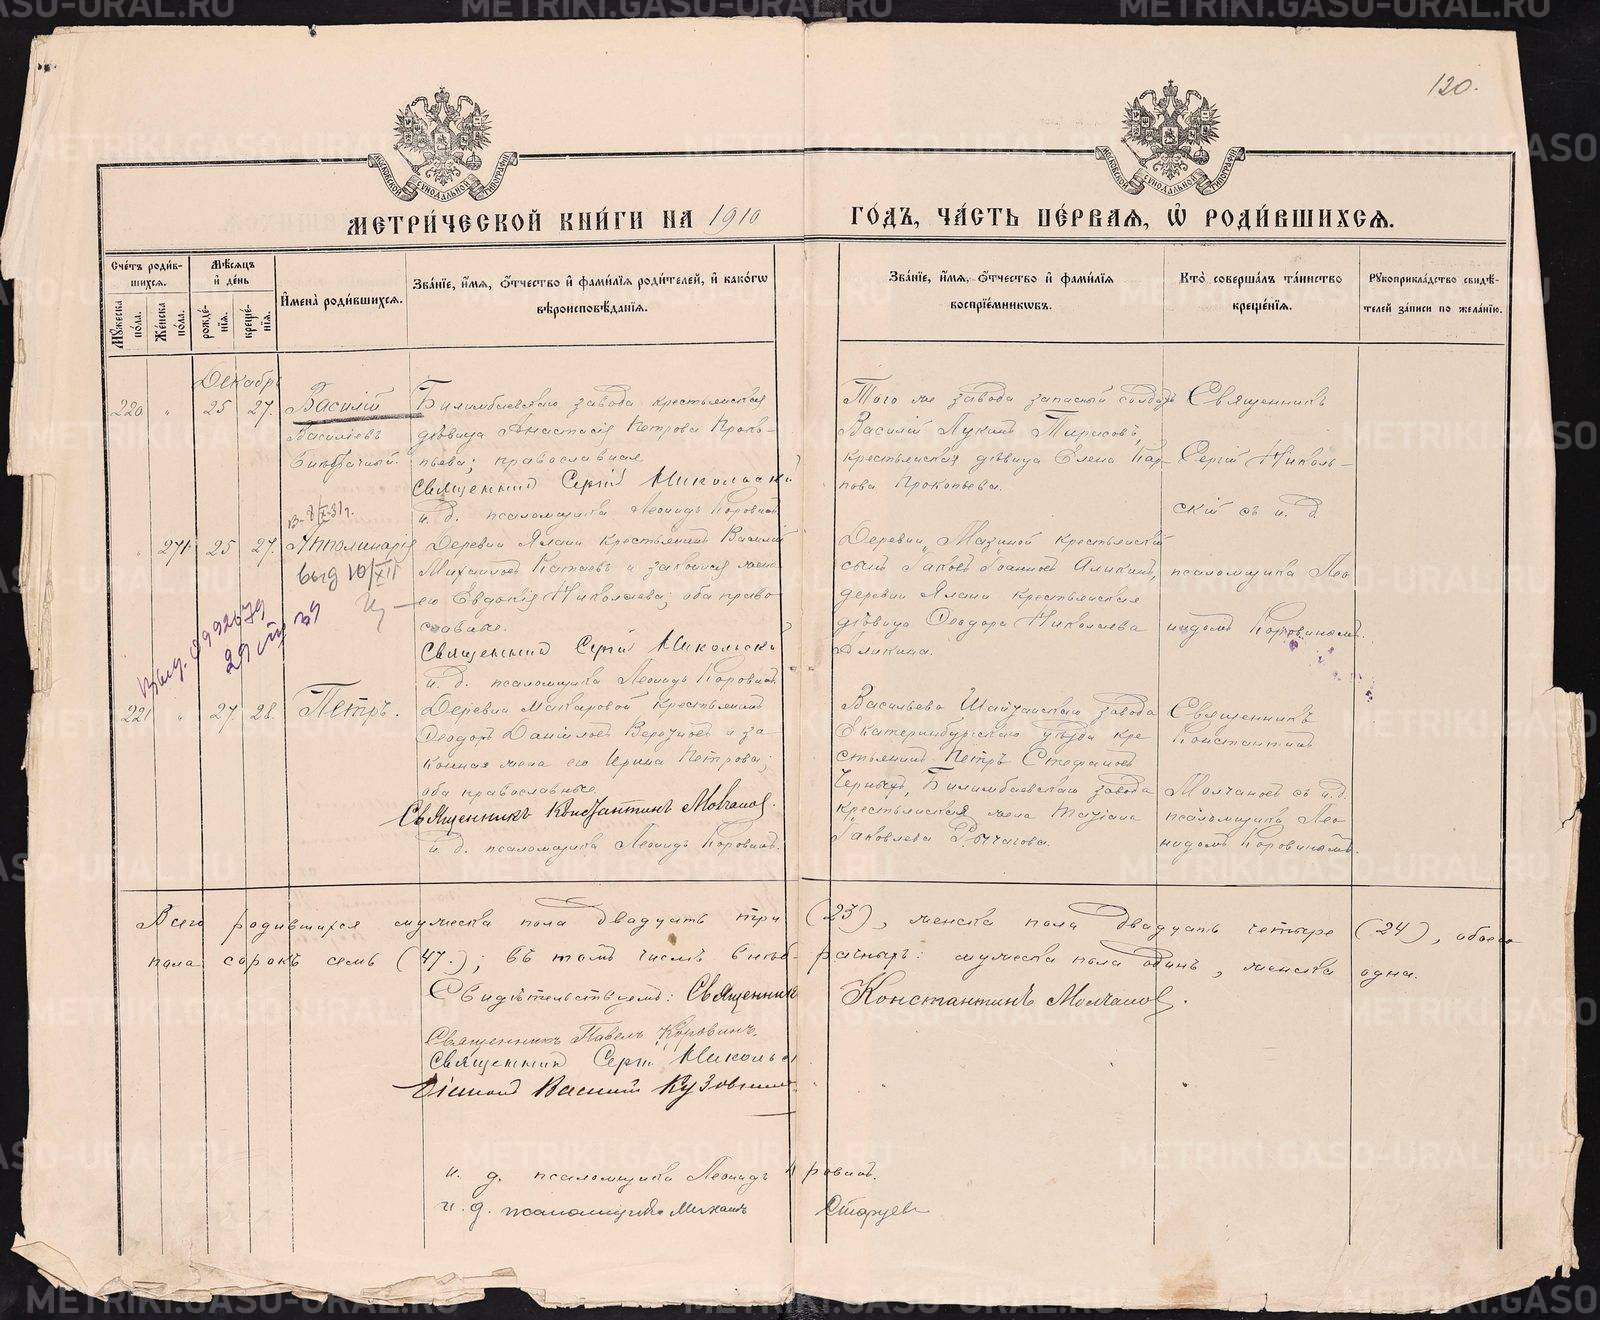 120.
МЕТРИ́ЧЕСКОЙ КНИ́ГИ НА 1910 ГО́ДЪ, ЧА́СТЬ ПЕ́РВАЯ, Ѡ РОДИ́ВШИХСЯ.
Сче́тъ роди́вшихся.
Му́жеска по́ла.
Же́нска по́ла.
Мѣ́сяцъ и де́нь
рожде́нїя.
креще́нїя.
И҆мена̀ роди́вшихся.
Зва́нїе, и҆́мя, ѻ҆́тчество и҆ фами́лїя роди́телей, и҆ како́гѡ вѣроисповѣ́данїя.
Зва́нїе, и҆́мя, ѻ҆́тчество и҆ фами́лїя воспрїе́мникѡвъ.
Кто̀ соверша́лъ та́инство креще́нїя.
Рꙋкоприкла́дство свидѣ́телей за́писи по жела́нїю.
Декабрь
220 " 25 27.
Василій
Васильевъ
Внѣбрачный.
Билимбаевскаго завода крестьянская
дѣвица Анастасія Петрова Проко-
пьева; православная
Священникъ Сергій Никольскій
и. д. псаломщика Леонидъ Коровинъ
Того же завода запасный солдатъ
Василій Лукинъ Тарасовъ,
крестьянская дѣвица Елена Кар-
пова Прокопьева.
Священникъ
Сергій Николь-
скій съ и. д.
" 271. 25 27.
Апполинарія
выд 10/XII
Деревни Ялани крестьянинъ Василій
Михайловъ Катаевъ и законная жена
его Евдокія Николаева; оба право-
славные.
Священникъ Сергій Никольскій
и. д. псаломщика Леонидъ Коровинъ
Деревни Мазиной крестьянскій
сынъ Іаковъ Іоанновъ Аликинъ,
деревни Ялани крестьянская
дѣвица Ѳеодора Николаева
Аликина.
псаломщика Лео-
нидомъ Коровинымъ.
221 " 27. 28.
Петръ.
Деревни Макаровой крестьянинъ
Ѳеодоръ Даніиловъ и за-
конная жена его Ирина Петрова;
оба православные.
Священникъ Константинъ Молчановъ.
и. д. псаломщика Леонидъ Коровинъ.
Васильево Шайтанскаго завода
Екатеринбургскаго уѣзда кре-
стьянинъ Петръ Стефановъ
Черныхъ, Билимбаевскаго завода
крестьянская жена Татіана
Іаковлева
Священникъ
Константинъ
Молчановъ съ и. д.
псаломщика Лео-
нидомъ Коровинымъ.
Всего родившихся мужеска пола двадцать три (23), женска пола двадцать четыре (24), обоего
пола сорокъ семь (47.); въ томъ числѣ внѣбрачныхъ: мужеска пола одинъ, женска одна.
Свидѣтельствуемъ: Священникъ Константинъ Молчановъ.
Священникъ Павелъ Коровинъ.
Священникъ Сергій Никольскій
Діаконъ Василій Кузовников
и. д. псаломщика Леонидъ Коровинъ.
и. д. псаломщика Михаилъ Старцевъ